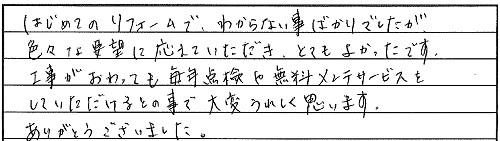 はじめてのリフォームで、わからない事ばかりでしたが
色々な要望に応えていただき、とてもよかったです。
工事がおわっても毎年点検や無料メンテサービスを
していただけるとの事で大変うれしく思います。
ありがとうございました。